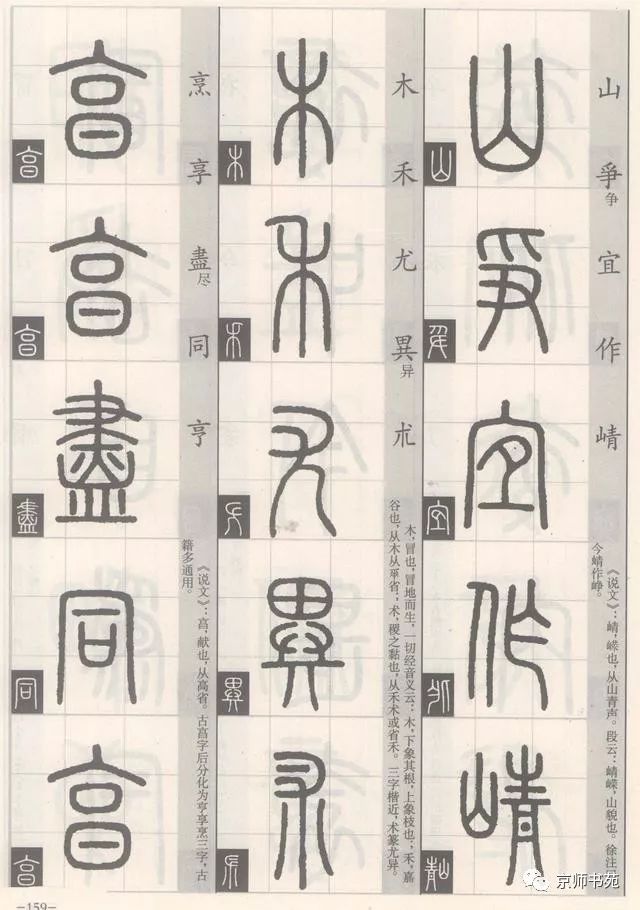 山 爭争 宜 作 崝
《说文》：崝，嵘也，从山青声。段云：崝嵘，山貌也。徐注
今崝作峥。
山
爭
宜
作
崝
木 禾 尤 異异 朮
木，冒也，冒地而生，一切经音义云：木，下象其根，上象枝也；禾，嘉
谷也，从木从𠂹省；术，稷之黏也，从禾术或省禾。三字楷近，术篆尤异。
木
禾
尤
異
朮
烹 享 盡尽 同 亨
《说文》：亯，献也，从高省。古亯字后分化为亨享烹三字，古
籍多通用。
亯
亯
盡
同
亯
—159—
京师书苑